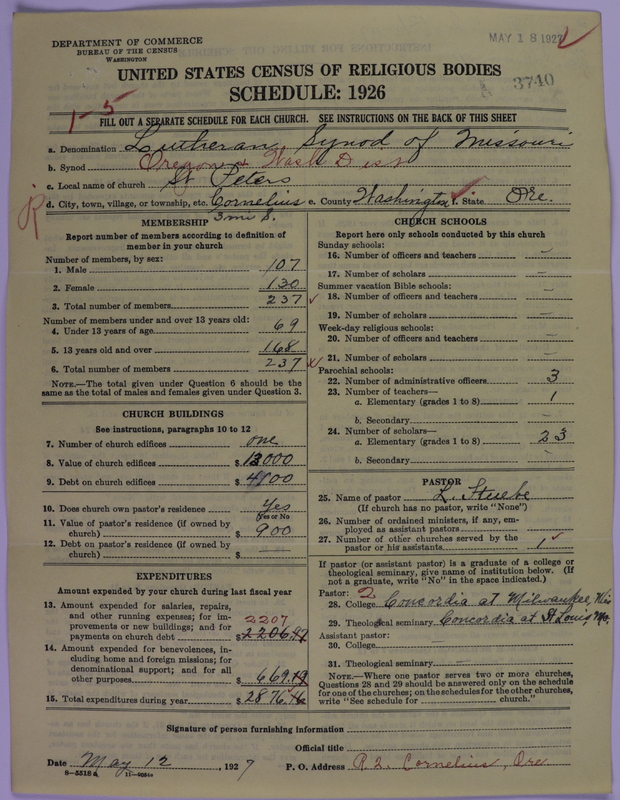 DEPARTMENT OF COMMERCE
BUREAU OF THE CENSUS
WASHINGTON
MAY 18 1927
3740
UNITED STATES CENSUS OF RELIGIOUS BODIES
SCHEDULE: 1926
1-5
FILL OUT A SEPARATE SCHEDULE FOR EACH CHURCH. SEE INSTRUCTIONS ON THE BACK OF THIS SHEET
a. Denomination Lutheran, Synod of Missouri
b. Synod Oregon & Wash Dist
c. Local name of church St Peters
R
d. City, town, village, or township, etc. Cornelius e. County Washington f. State Ore.
3 mi S.
MEMBERSHIP
Report number of members according to definition of
member in your church
Number of members, by sex:
1. Male 107
2. Female 130
3. Total number of members 237
Number of members under and over 13 years old:
4. Under 13 years of age 69
5. 13 years old and over 168
6. Total number of members 237
NOTE.—The total given under Question 6 should be the
same as the total of males and females given under Question 3.
CHURCH BUILDINGS
See instructions, paragraphs 10 to 12
7. Number of church edifices one
8. Value of church edifices $ 12000
9. Debt on church edifices $ 4800
10. Does church own pastor's residence Yes
(Yes or No)
11. Value of pastor's residence (if owned by
church) $ 900
12. Debt on pastor's residence (if owned by
church) $ —
EXPENDITURES
Amount expended by your church during last fiscal year
13. Amount expended for salaries, repairs,
and other running expenses; for im-
provements or new buildings; and for 2207
payments on church debt $ 2206.97
14. Amount expended for benevolences, in-
cluding home and foreign missions; for
denominational support; and for all
other purposes $ 669.19
15. Total expenditures during year $ 2876.16
CHURCH SCHOOLS
Report here only schools conducted by this church
Sunday schools:
16. Number of officers and teachers —
17. Number of scholars —
Summer vacation Bible schools:
18. Number of officers and teachers —
19. Number of scholars —
Week-day religious schools:
20. Number of officers and teachers —
21. Number of scholars —
Parochial schools:
22. Number of administrative officers 3
23. Number of teachers—
a. Elementary (grades 1 to 8) 1
b. Secondary —
24. Number of scholars—
a. Elementary (grades 1 to 8) 23
b. Secondary —
PASTOR
25. Name of pastor L. Stuebe
(If church has no pastor, write "None")
26. Number of ordained ministers, if any, em-
ployed as assistant pastors
27. Number of other churches served by the
pastor or his assistants 1
If pastor (or assistant pastor) is a graduate of a college or
theological seminary, give name of institution below. (If
not a graduate, write "No" in the space indicated.)
Pastor: 2
28. College Concordia at Milwaukee, Wis
29. Theological seminary Concordia at St Louis, Mo.
Assistant pastor:
30. College
31. Theological seminary —
NOTE.—Where one pastor serves two or more churches,
Questions 28 and 29 should be answered only on the schedule
for one of the churches; on the schedules for the other churches,
write "See schedule for church."
Signature of person furnishing information
Official title
Date May 12, 1927 P. O. Address R 2. Cornelius, Ore
8-5518a